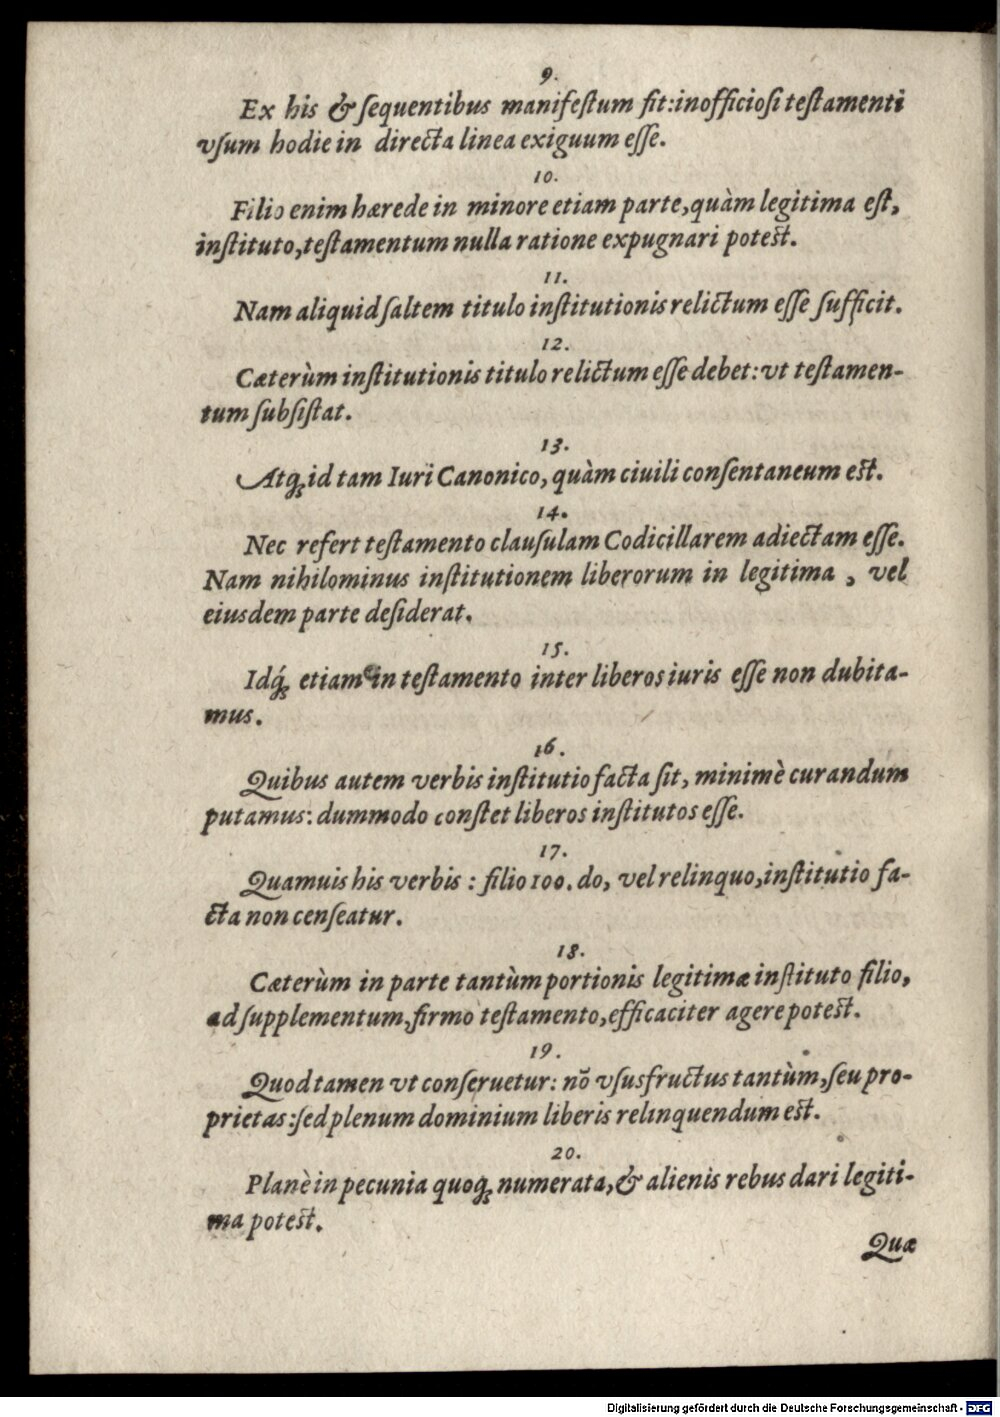 9.
Ex his & ſequentibus manifeſtum ſit: inofficioſi teſtamenti
vſum hodie in directa linea exiguum eſſe.
10.
Filio enim hærede in minore etiam parte, quàm legitima eſt,
inſtituto, teſtamentum nulla ratione expugnari poteſt.
11.
Nam aliquid ſaltem titulo inſtitutionis relictum eſſe ſufficit.
12.
Cæterùm inſtitutionis titulo relictum eſſe debet: vt teſtamen-
tum ſubſiſtat.
13.
Atq́; id tam Iuri Canonico, quàm ciuili conſentaneum eſt.
14.
Nec refert teſtamento clauſulam Codicillarem adiectam eſſe.
Nam nihilominus inſtitutionem liberorum in legitima, vel
eiusdem parte deſiderat.
15.
Idq́; etiam in teſtamento inter liberos iuris eſſe non dubita-
mus.
16.
Quibus autem verbis inſtitutio facta ſit, minimè curandum
putamus: dummodo conſtet liberos inſtitutos eſſe.
17.
Quamuis his verbis: filio 100. do, vel relinquo, inſtitutio fa-
cta non cenſeatur.
18.
Cæterùm in parte tantùm portionis legitimæ inſtituto filio,
ad ſupplementum, firmo teſtamento, efficaciter agere poteſt.
19.
Quod tamen vt conſeruetur: nō vſusfructus tantùm, ſeu pro-
prietas: ſed plenum dominium liberis relinquendum eſt.
20.
Planè in pecunia quoq; numerata, & alienis rebus dari legiti-
ma poteſt.
Quæ
Digitalisierung gefördert durch die Deutsche Forschungsgemeinschaft - DFG